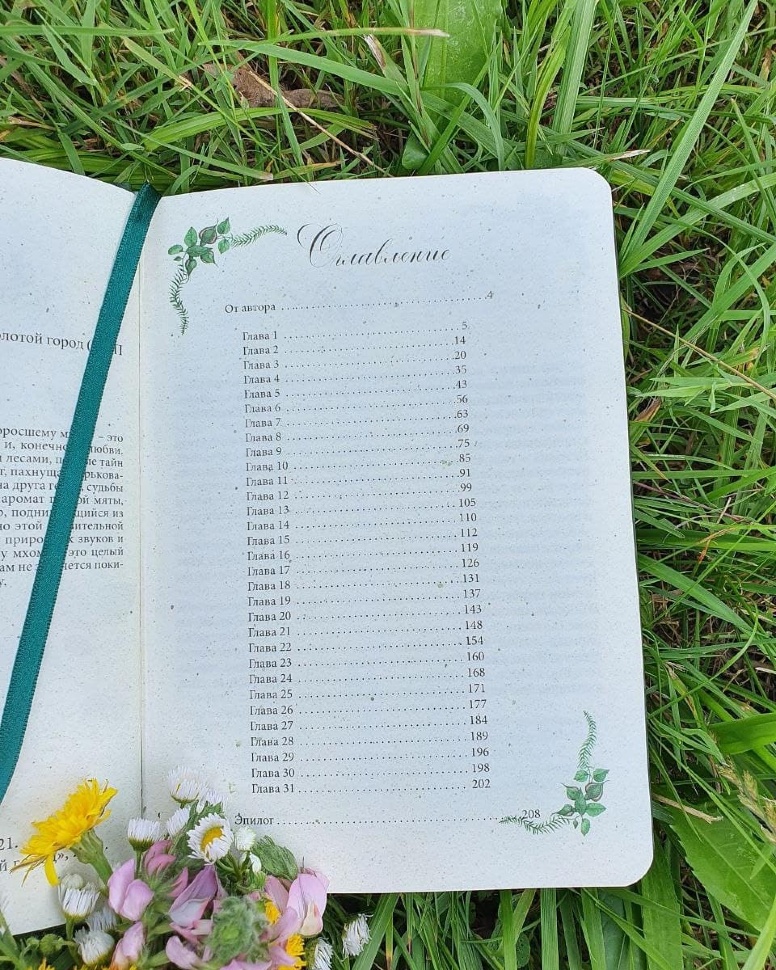 олотой город
оросшему – это
и, конечно, любви.
лесами, тайн
пахнуща
на друга судьбы
аромат мяты,
подни щийся из
но этой
природ х звуков и
у мхом это целый
ам не чется поки-
21.
Оглавление
От автора 4
Глава 1 5
Глава 2 14
Глава 3 20
Глава 4 35
Глава 5 43
Глава 6 56
Глава 7 63
Глава 8 69
Глава 9 75
Глава 10 85
Глава 11 91
Глава 12 99
Глава 13 105
Глава 14 110
Глава 15 112
Глава 16 119
Глава 17 126
Глава 18 131
Глава 19 137
Глава 20 143
Глава 21 148
Глава 22 154
Глава 23 160
Глава 24 168
Глава 25 171
Глава 26 177
Глава 27 184
Глава 28 189
Глава 29 196
Глава 30 198
Глава 31 202
Эпилог 208